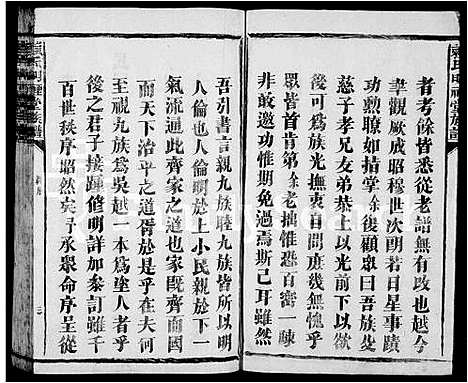 者考餘皆悉從老譜無有改也越今
聿觀厥成昭穆世次朗若日星事蹟
功勲瞭如指掌余復顧衆曰吾族父
慈子孝兄友弟恭上以光前下以裕
後可爲族光撫衷自問庶幾無愧乎
眾皆首肯第余老拙惟恐百密一疎
不敢邀功惟期免過焉斯已耳雖然
吾引書言親九族睦九族皆所以明
人倫也人倫明於上小民親於下一
氣流通此齊家之道也家旣齊而國
與天下治平之道胥於是乎在夫何
至視九族爲吳越一本爲塗人者乎
後之君子接踵修明詳加叅訂雖千
百世挨序昭然矣予承衆命序呈從